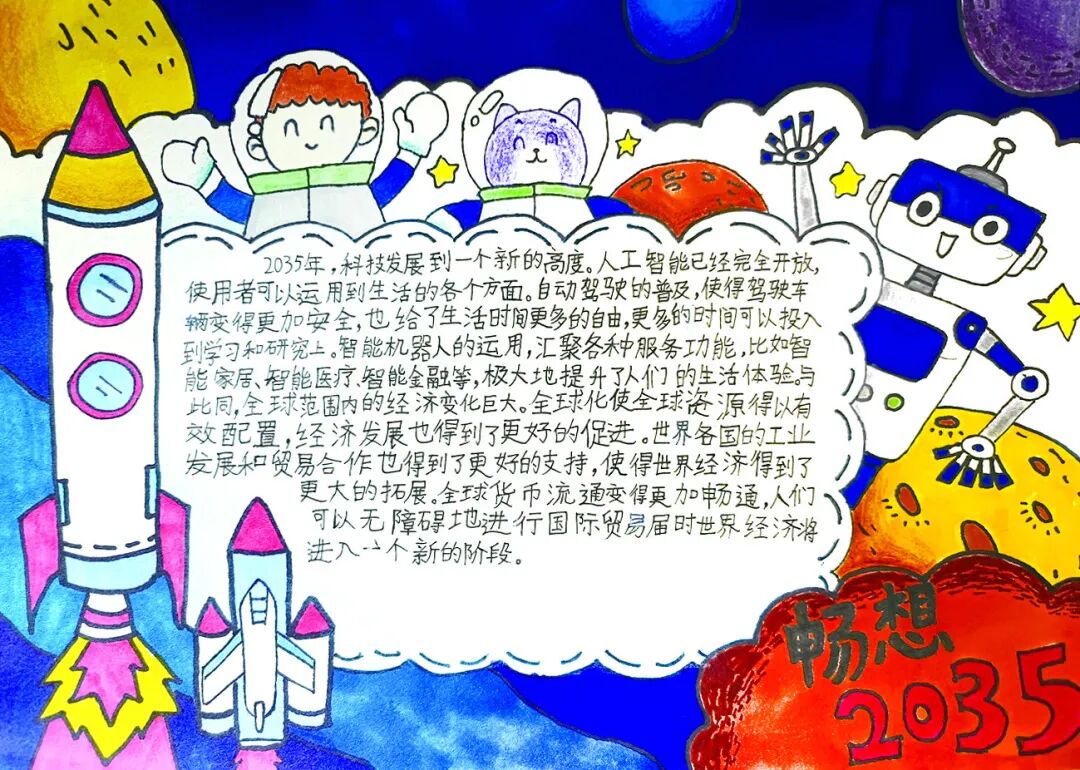 2035年，科技发展到一个新的高度。人工智能已经完全开放，
使用者可以运用到生活的各个方面。自动驾驶的普及，使得驾驶车
辆变得更加安全，也给了生活时间更多的自由，更多的时间可以投入
到学习和研究上。智能机器人的运用，汇聚各种服务功能，比如智
能家居、智能医疗、智能金融等，极大地提升了人们的生活体验。与
此同，全球范围内的经济变化巨大。全球化使全球资源得以有
效配置，经济发展也得到了更好的促进。世界各国的工业
发展和贸易合作也得到了更好的支持，使得世界经济得到了
更大的拓展。全球货币流通变得更加畅通，人们
可以无障碍地进行国际贸易届时世界经济将
进入一个新的阶段。
畅想
2035